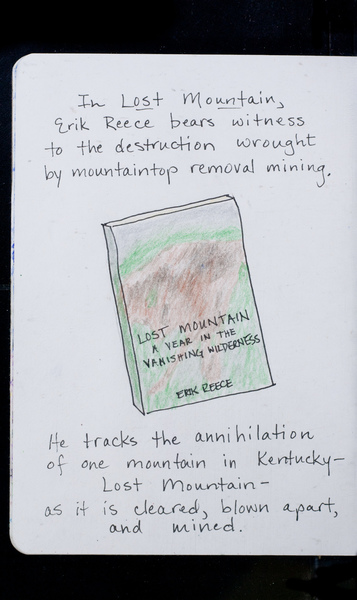 In Lost Mountain,
Erik Reece bears witness
to the destruction wrought
by mountaintop removal mining.
LOST MOUNTAIN
A YEAR IN THE
VANISHING WILDERNESS
ERIK REECE
He tracks the annihilation
of one mountain in Kentucky—
Lost Mountain—
as it is cleared, blown apart,
and mined.